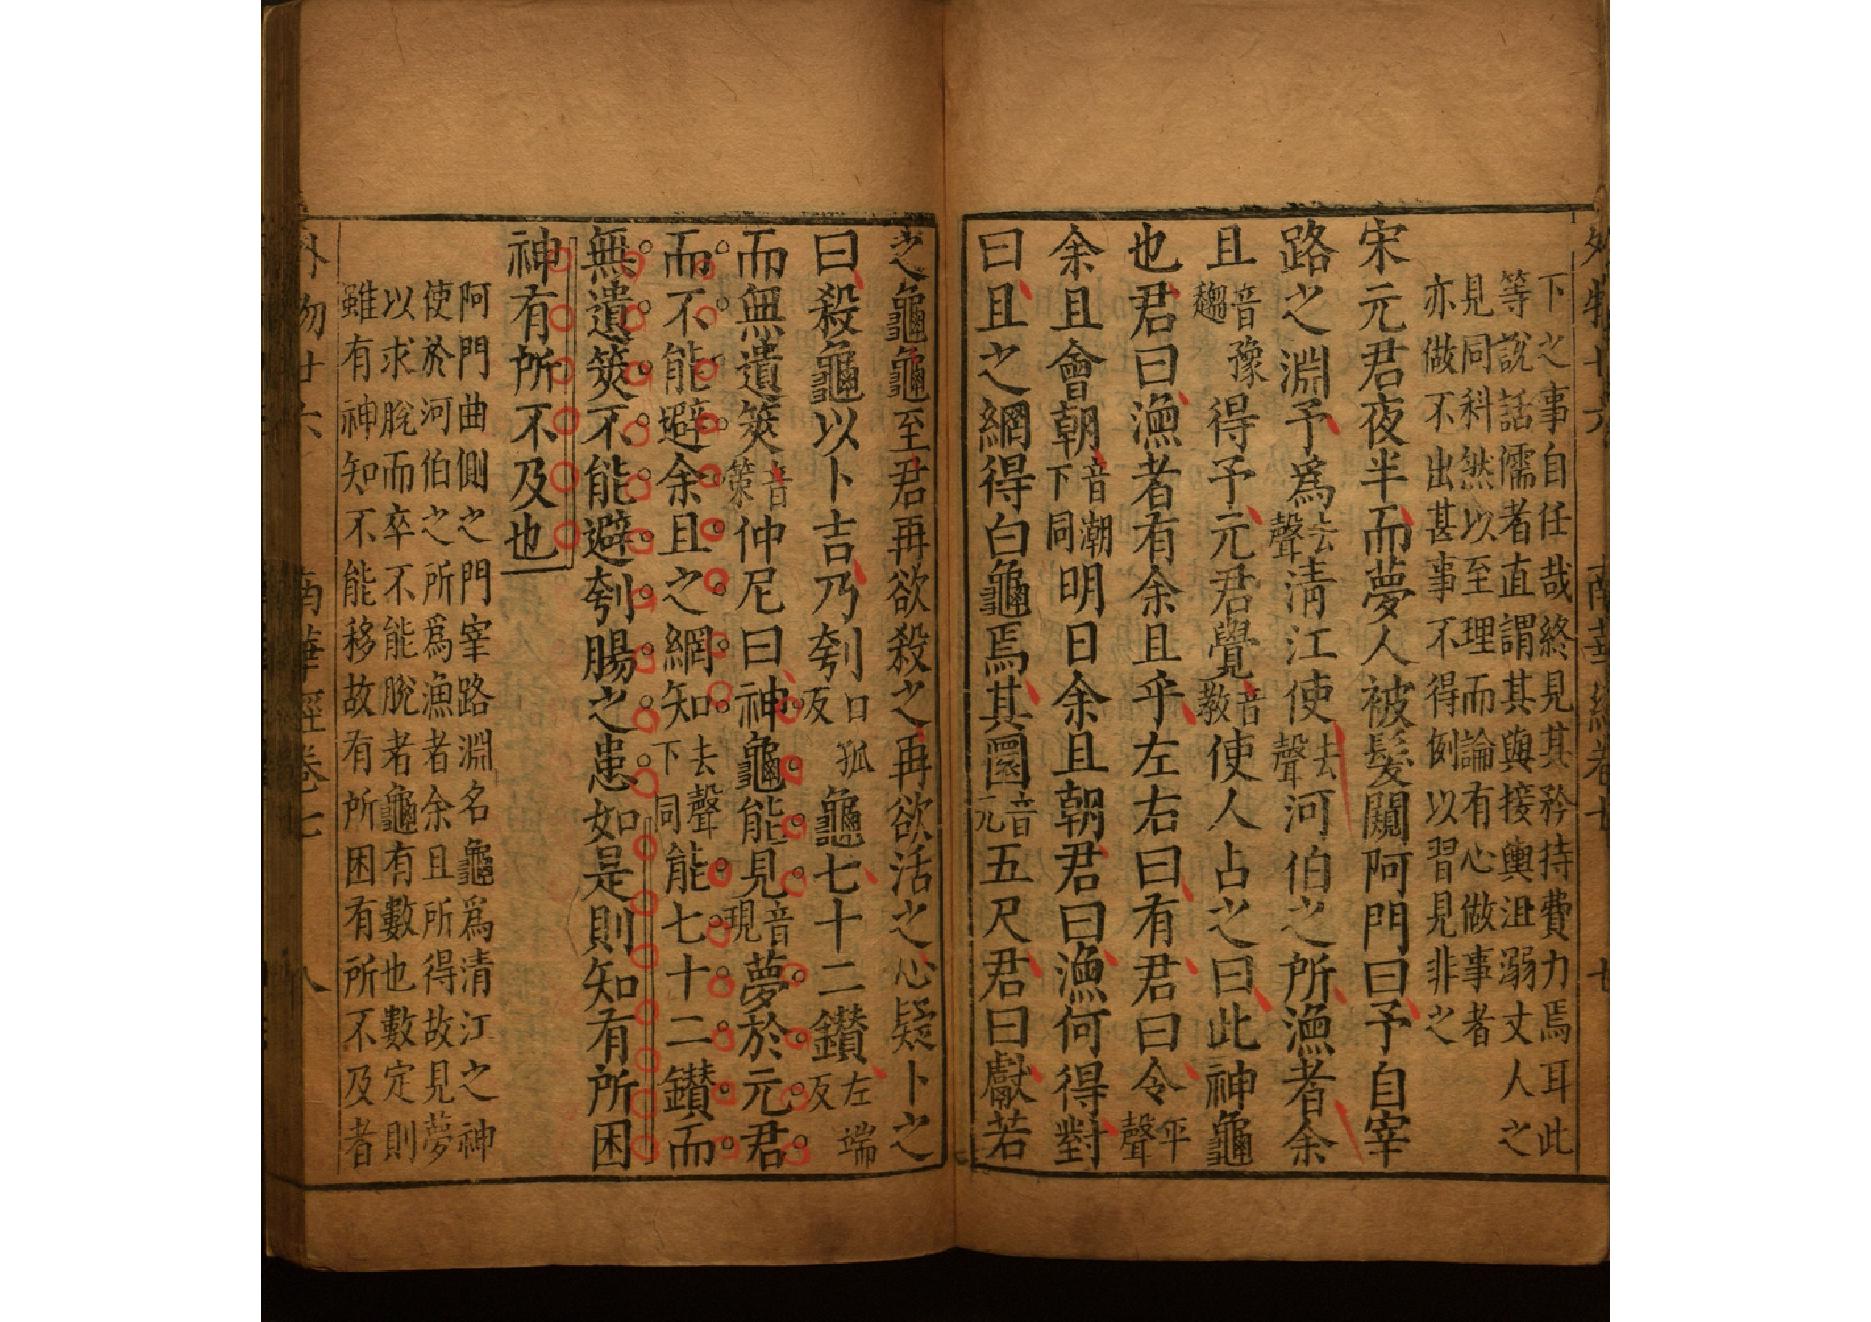 下之事自任哉終見其矜持費力焉耳此
等說話儒者直謂其與接輿沮溺丈人之
見同科然以至理而論有心做事者
亦做不出甚事不得例以習見非之
宋元君夜半而夢人被髮闚阿門曰予自宰
路之淵予爲去聲清江使去聲河伯之所漁者余
且音趨豫得予元君覺音教使人占之曰此神龜
也君曰漁者有余且乎左右曰有君曰令平聲
余且會朝音潮下同明日余且朝君曰漁何得對
曰且之網得白龜焉其圜音元五尺君曰獻若
之龜龜至君再欲殺之再欲活之心疑卜之
曰殺龜以卜吉乃刳口狐反龜七十二鑽左端反
而無遺筴音策仲尼曰神龜能見音現夢於元君
而不能避余且之網知去聲下同能七十二鑽而
無遺筴不能避刳腸之患如是則知有所困
神有所不及也
阿門曲側之門宰路淵名龜爲清江之神
使於河伯之所爲漁者余且所得故見夢
以求脫而卒不能脫者龜有數也數定則
雖有神知不能移故有所困有所不及者
外物廿六 南華經卷七 八